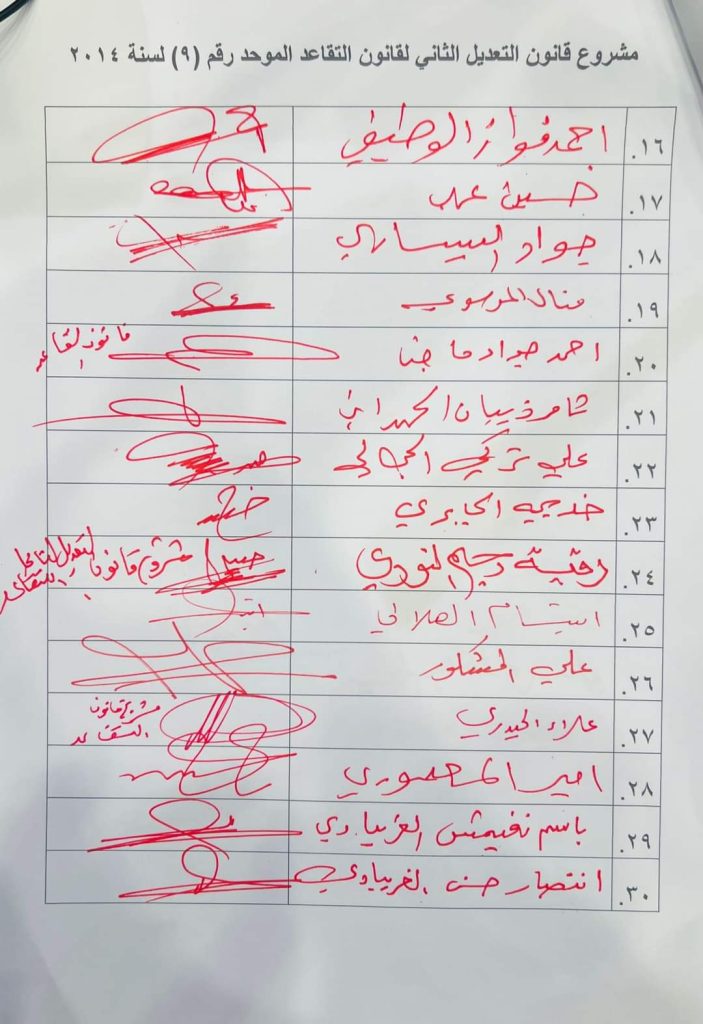 مشروع قانون التعديل الثاني لقانون التقاعد الموحد رقم (٩) لسنة ٢٠١٤
١٦. احمد فواز الوطيفي
١٧. حسين عرب
١٨. جواد اليساري
١٩. منال الموسوي
٢٠. احمد جواد
قانون التقاعد
٢١. ثامر ذيبان الحمداني
٢٢. علي تركي الجمالي
٢٣. خديجه الجابري
٢٤. رقية رحيم النوري
مشروع قانون
٢٥. ابتسام الهلالي
٢٦. علي المشكور
٢٧. علاء الحيدري
مشروع قانون التقاعد
٢٨. امير المعموري
٢٩. باسم نغيمش الغريباوي
٣٠. انتصار حسن الغريباوي